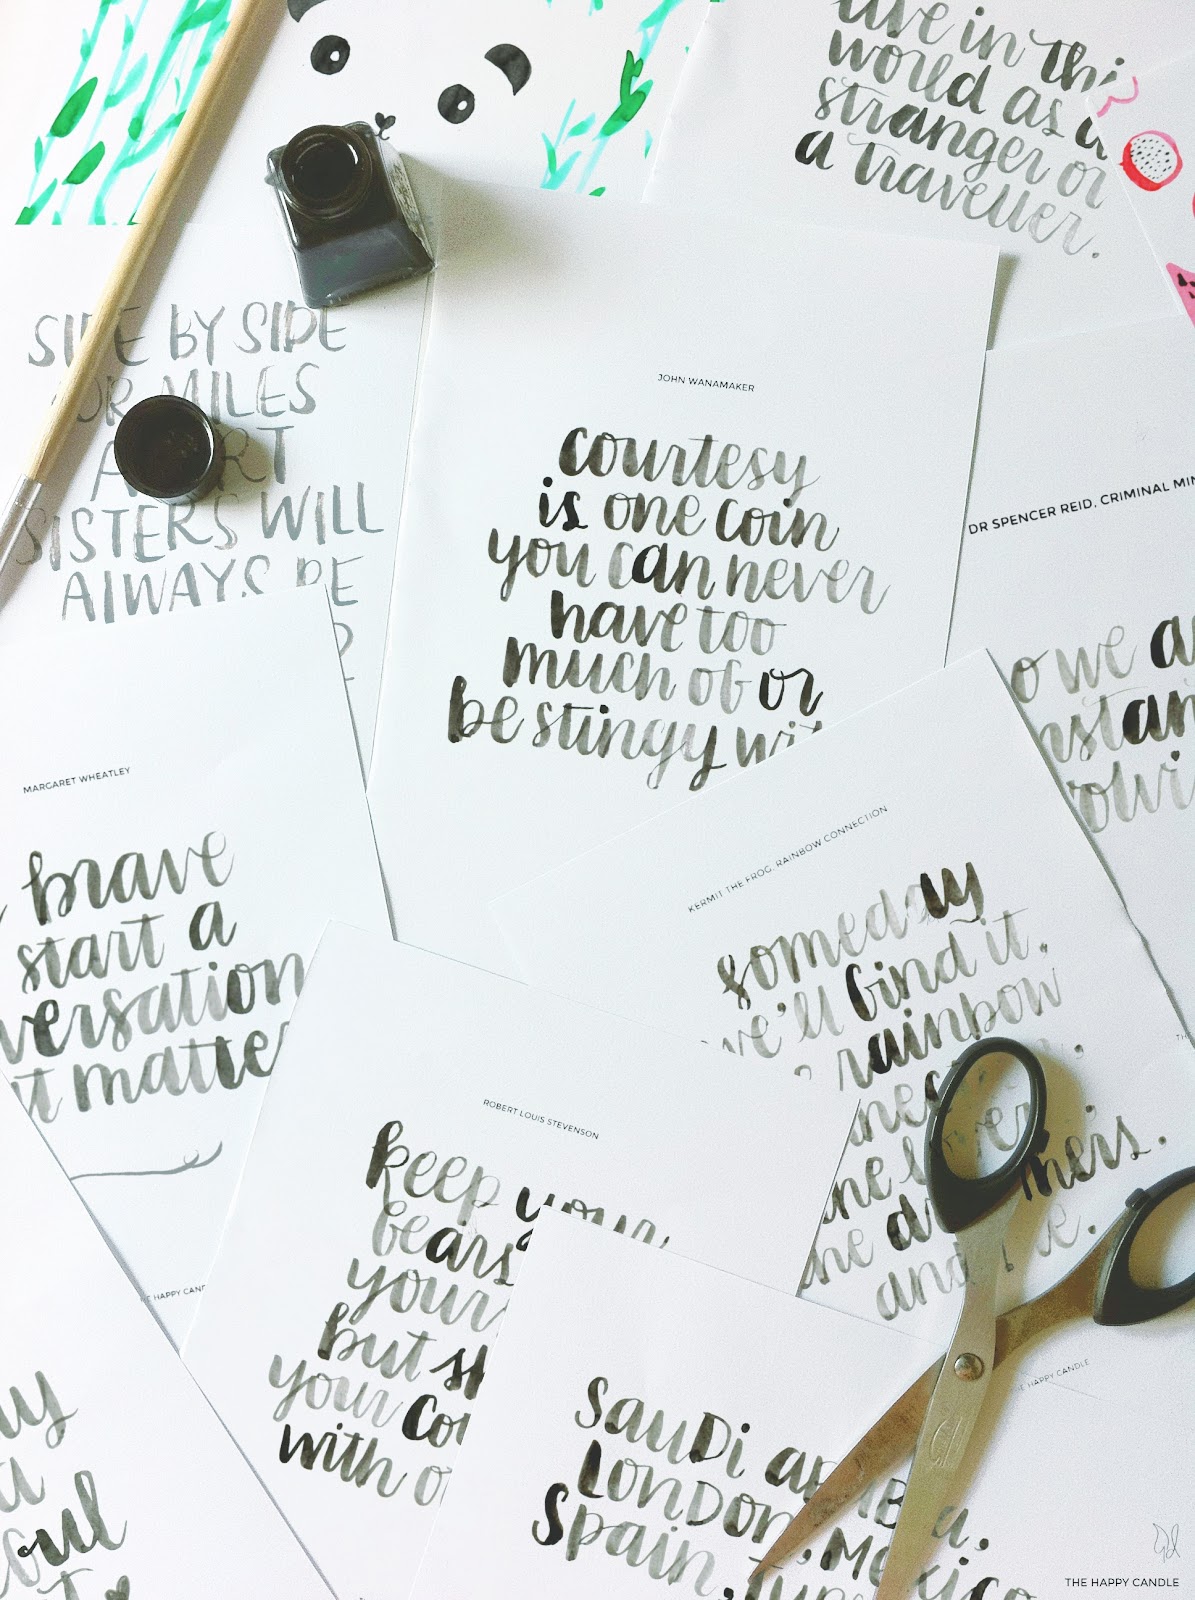 live in this
world as a
stranger or
a traveller.
SIDE BY SIDE
OR MILES
APART
SISTERS WILL
ALWAYS BE
JOHN WANAMAKER
courtesy
is one coin
you can never
have too
much of or
be stingy with
DR SPENCER REID, CRIMINAL MIN
we
MARGARET WHEATLEY
brave
start a
versation
matte
THE HAPPY CAND
KERMIT THE FROG, RAINBOW CONNECTION
someday
we'll find it,
rainbow
and me.
THE HAPPY CANDLE
ROBERT LOUIS STEVENSON
keep your
fears
your
but sh
your cou
with o
SAUDI ARABIA,
LONDON, MEXICO
Spain,
oul
THE HAPPY CANDLE